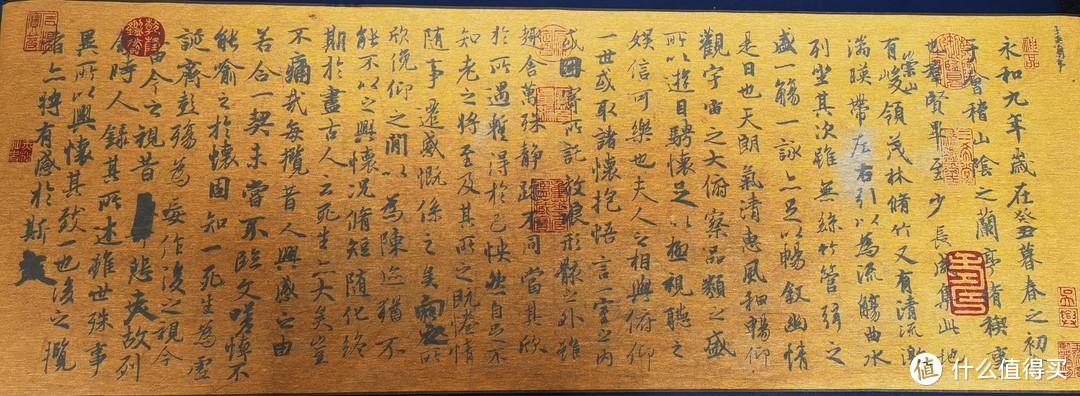 永和九年歲在癸丑暮春之初
于會稽山陰之蘭亭脩禊事
也群賢畢至少長咸集此地
有崇山峻領茂林脩竹又有清流激
湍暎帶左右引以為流觴曲水
列坐其次雖無絲竹管弦之
盛一觴一詠亦足以暢敘幽情
是日也天朗氣清惠風和暢仰
觀宇宙之大俯察品類之盛
所以遊目騁懷足以極視聽之
娛信可樂也夫人之相與俯仰
一世或取諸懷抱悟言一室之內
或因寄所託放浪形骸之外雖
趣舍萬殊靜躁不同當其欣
於所遇暫得於己怏然自足不
知老之將至及其所之既惓情
隨事遷感慨係之矣向之所
欣俛仰之間以為陳迹猶不
能不以之興懷況脩短隨化終
期於盡古人云死生亦大矣豈
不痛哉每攬昔人興感之由
若合一契未嘗不臨文嗟悼不
能喻之於懷固知一死生為虛
誕齊彭殤為妄作後之視今
亦由今之視昔悲夫故列
敘時人錄其所述雖世殊事
異所以興懷其致一也後之攬
者亦將有感於斯文
值 什么值得买